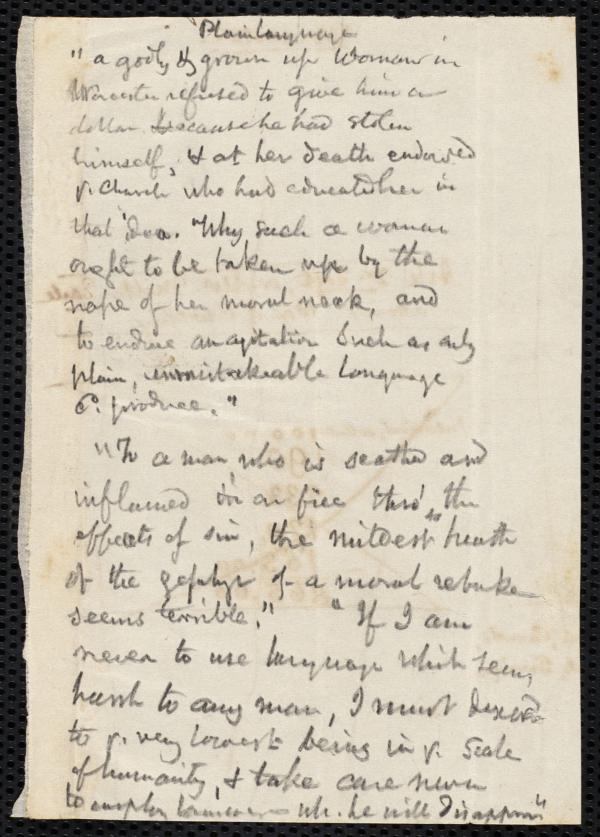 Plain language
" a godly & grown up woman in
Worcester refused to give him a
dollar because he had stolen
himself, & at her death endowed
y. church who had educated her in
that idea. Why such a woman
ought to be taken up by the
nape of her moral neck, and
to endure an agitation such as only
plain, unmistakeable language
c. produce."
"To a man who is seathed and
inflamed on fire thro' the
effects of sin, the mildest breath
of the zephyr of a moral rebuke
seems terrible." "If I am
never to use language which seems
harsh to any man, I must descend
to y. very lowest being in y. scale
of humanity, & take care never
to employ wh. he will disapprove"